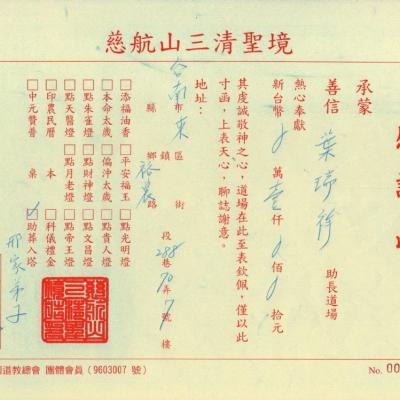 慈航山三清聖境
承蒙
善信 葉 助長道場
熱心奉獻
新台幣 萬壹仟 佰 拾元
其虔誠敬神之心，道場在此至表欽佩，僅以此
寸函，上表天心，聊誌謝意。
地址：
台南市東區
縣 鄉鎮 裕農路街 段 288巷 70弄 7號 樓
□添福油香 □平安福玉 □點光明燈
□本命太歲 □偏沖太歲 □點貴人燈
□點朱雀燈 □點財神燈 □點文昌燈
□點天醫燈 □點月老燈 □點帝王燈
□印農民曆 本 □科儀禮金
□中元贊普 桌 □助葬入塔
邢家弟子
道教總會 團體會員（9603007 號）
No. 00